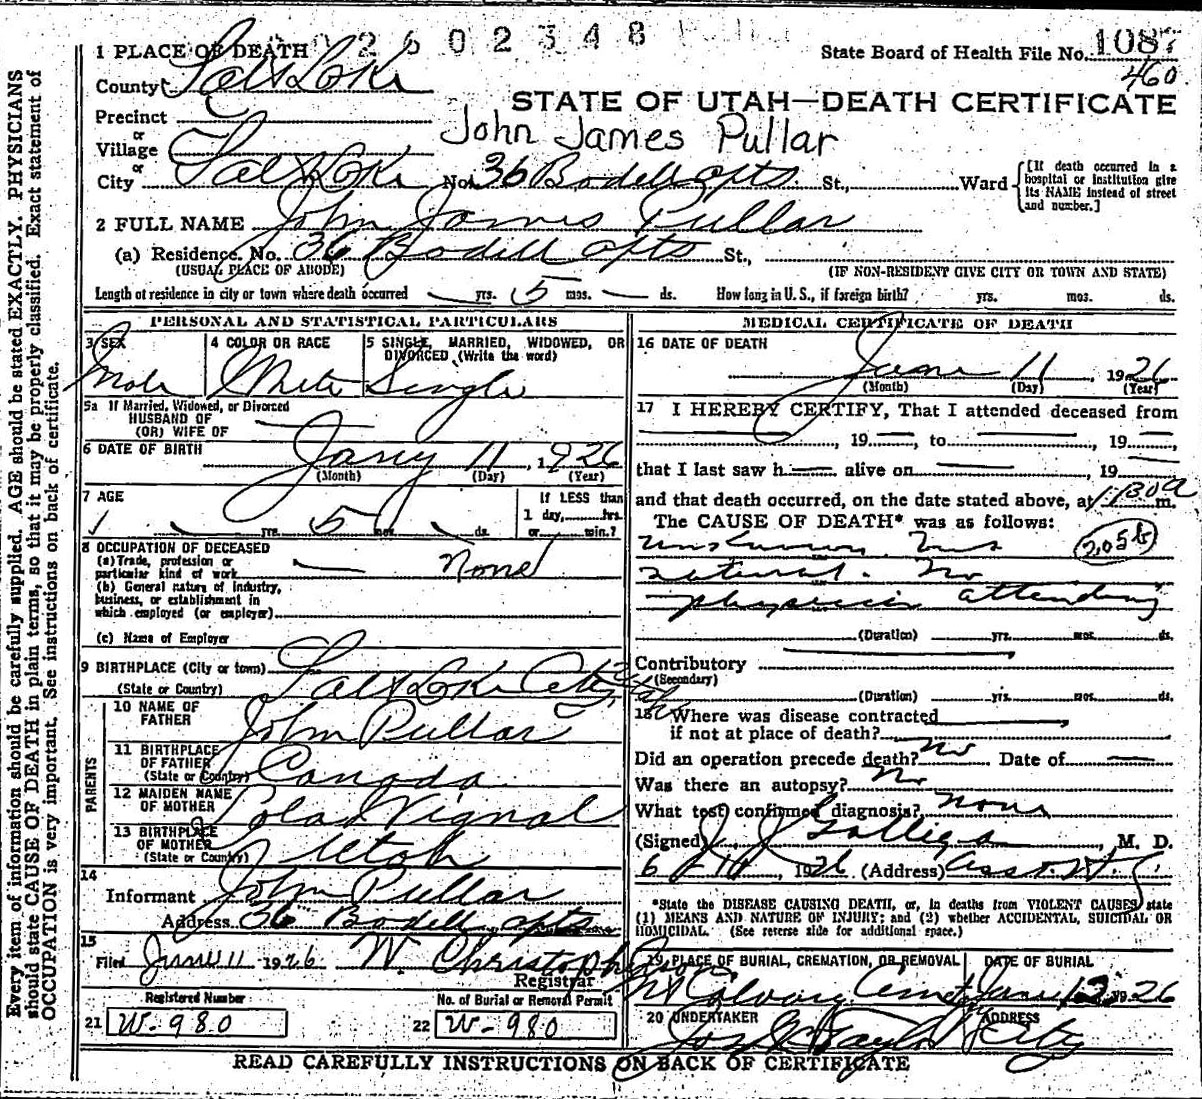 2602348
1 PLACE OF DEATH
State Board of Health File No. 1087
460
County Salt Lake
STATE OF UTAH—DEATH CERTIFICATE
Precinct
or
John James Pullar
Village
or
City Salt Lake No. 36 Bodell apts. St., Ward
[If death occurred in a hospital or institution give its NAME instead of street and number.]
2 FULL NAME John James Pullar
(a) Residence. No. 36 Bodell apts St.,
(USUAL PLACE OF ABODE) (IF NON-RESIDENT GIVE CITY OR TOWN AND STATE)
Length of residence in city or town where death occurred — yrs. 5 mos. — ds. How long in U. S., if foreign birth? yrs. mos. ds.
PERSONAL AND STATISTICAL PARTICULARS
3 SEX 4 COLOR OR RACE 5 SINGLE, MARRIED, WIDOWED, OR DIVORCED (Write the word)
Male White Single
5a If Married, Widowed, or Divorced
HUSBAND OF
(OR) WIFE OF —
6 DATE OF BIRTH Jany 11, 1926
(Month) (Day) (Year)
7 AGE
If LESS than
1 day, hrs.
or min.?
yrs. 5 mos. ds.
8 OCCUPATION OF DECEASED
(a) Trade, profession or
particular kind of work — None
(b) General nature of industry,
business, or establishment in
which employed (or employer)
(c) Name of Employer
9 BIRTHPLACE (City or town) Salt Lake City, Utah
(State or Country)
PARENTS
10 NAME OF FATHER John Pullar
11 BIRTHPLACE OF FATHER (State or Country) Canada
12 MAIDEN NAME OF MOTHER Lola Vignal
13 BIRTHPLACE OF MOTHER (State or Country) Utah
14
Informant John Pullar
Address 36 Bodell apts
15
Filed June 11 1926 W. Christopherson
Registrar
Registered Number No. of Burial or Removal Permit
21 W-980 22 W-980
MEDICAL CERTIFICATE OF DEATH
16 DATE OF DEATH
June 11, 1926
(Month) (Day) (Year)
17 I HEREBY CERTIFY, That I attended deceased from
—, 19—, to —, 19—
that I last saw h— alive on —, 19—
and that death occurred, on the date stated above, at 1:30 a m.
The CAUSE OF DEATH* was as follows:
unknown. 205b
natural. No
physician attending
(Duration) yrs. mos. ds.
Contributory
(Secondary)
(Duration) yrs. mos. ds.
18 Where was disease contracted —
if not at place of death?
Did an operation precede death? No Date of —
Was there an autopsy? No
What test confirmed diagnosis? none
(Signed) J. J. Galligan, M. D.
1926 (Address)
*State the DISEASE CAUSING DEATH, or, in deaths from VIOLENT CAUSES, state
(1) MEANS AND NATURE OF INJURY; and (2) whether ACCIDENTAL, SUICIDAL OR
HOMICIDAL. (See reverse side for additional space.)
19 PLACE OF BURIAL, CREMATION, OR REMOVAL DATE OF BURIAL
Mt Calvary Cemet June 12 1926
20 UNDERTAKER ADDRESS
Jos Taylor City
READ CAREFULLY INSTRUCTIONS ON BACK OF CERTIFICATE
Every item of information should be carefully supplied. AGE should be stated EXACTLY. PHYSICIANS
should state CAUSE OF DEATH in plain terms, so that it may be properly classified. Exact statement of
OCCUPATION is very important. See instructions on back of certificate.